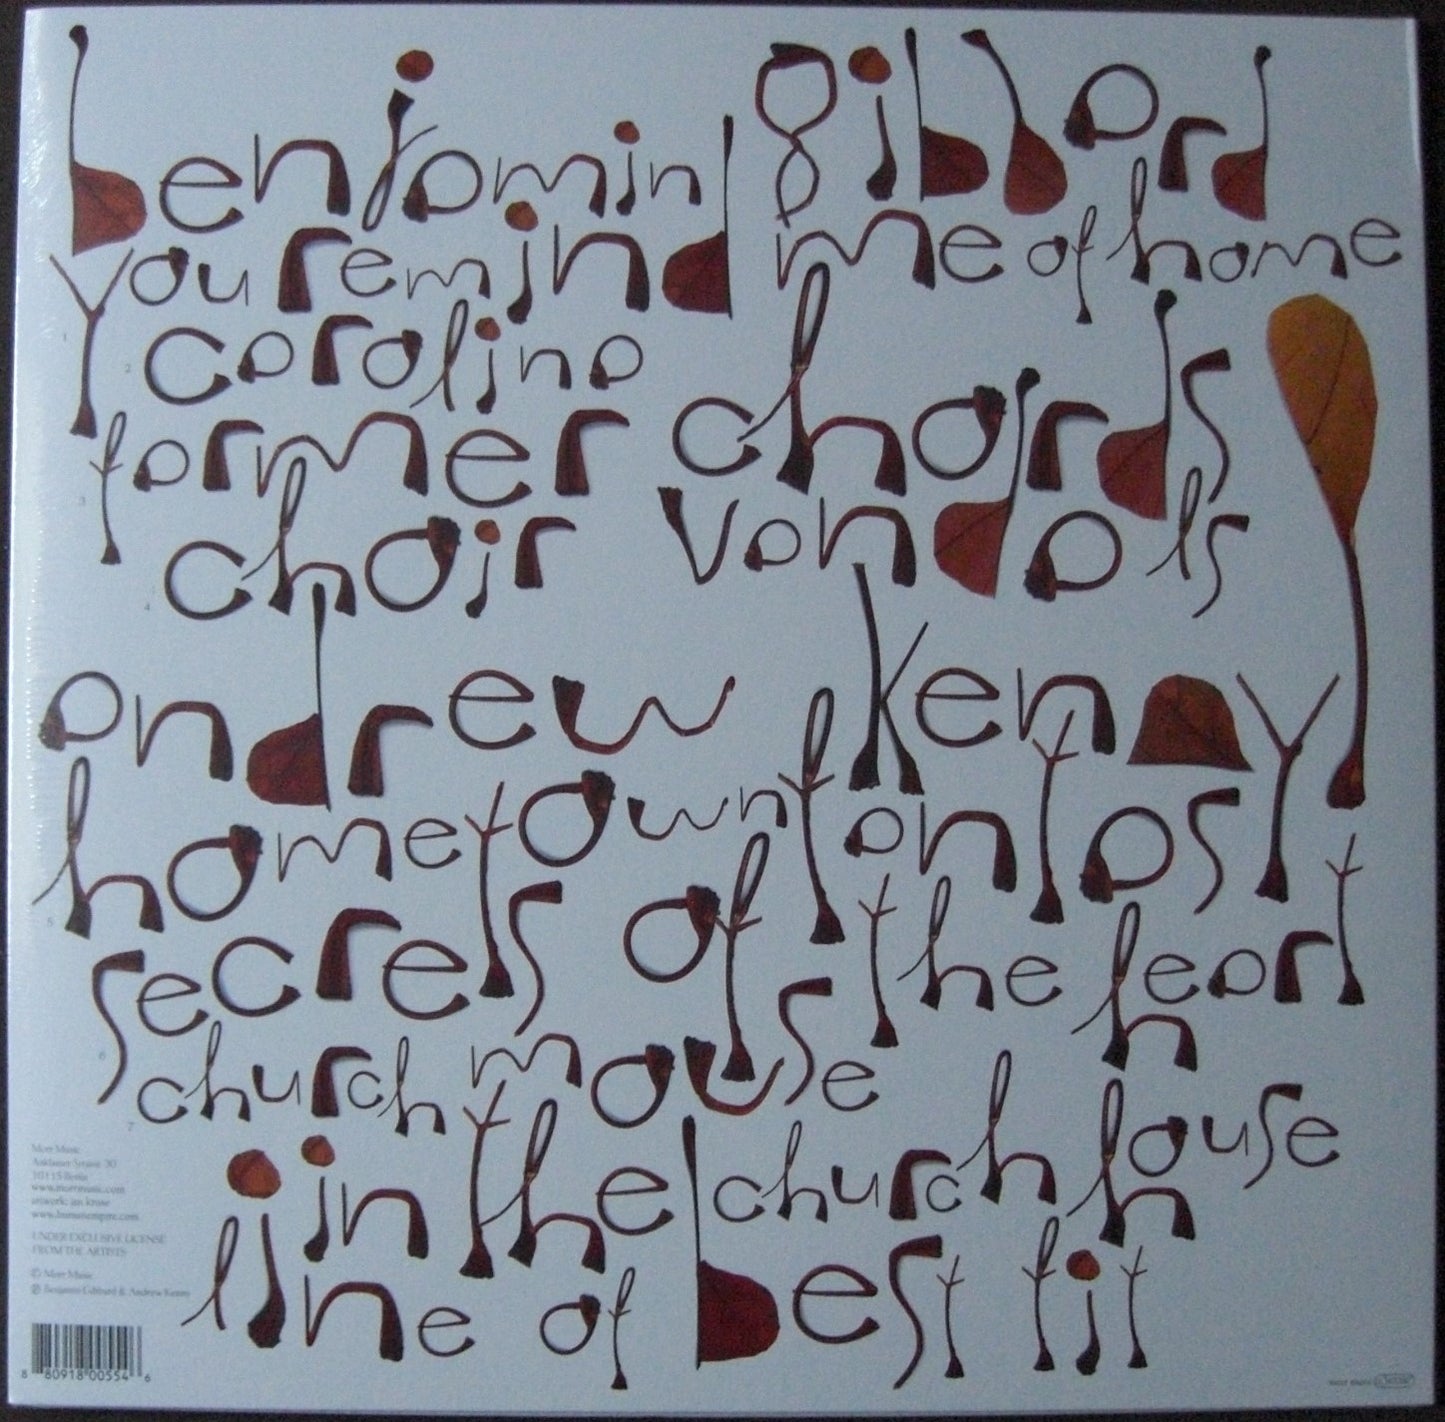 benjamin gibbard
1 you remind me of home
2 carolina
3 former chords
4 choir vandals
andrew kenny
5 hometown fantasy
6 secrets of the heart
7 church mouse
in the church house
line of best fit
Morr Music
10115 Berlin
www.morrmusic.com
artwork: jan kruse
www.humanempire.com
UNDER EXCLUSIVE LICENSE
FROM THE ARTISTS
© Morr Music
℗ Benjamin Gibbard & Andrew Kenny
8 80918 00554 6